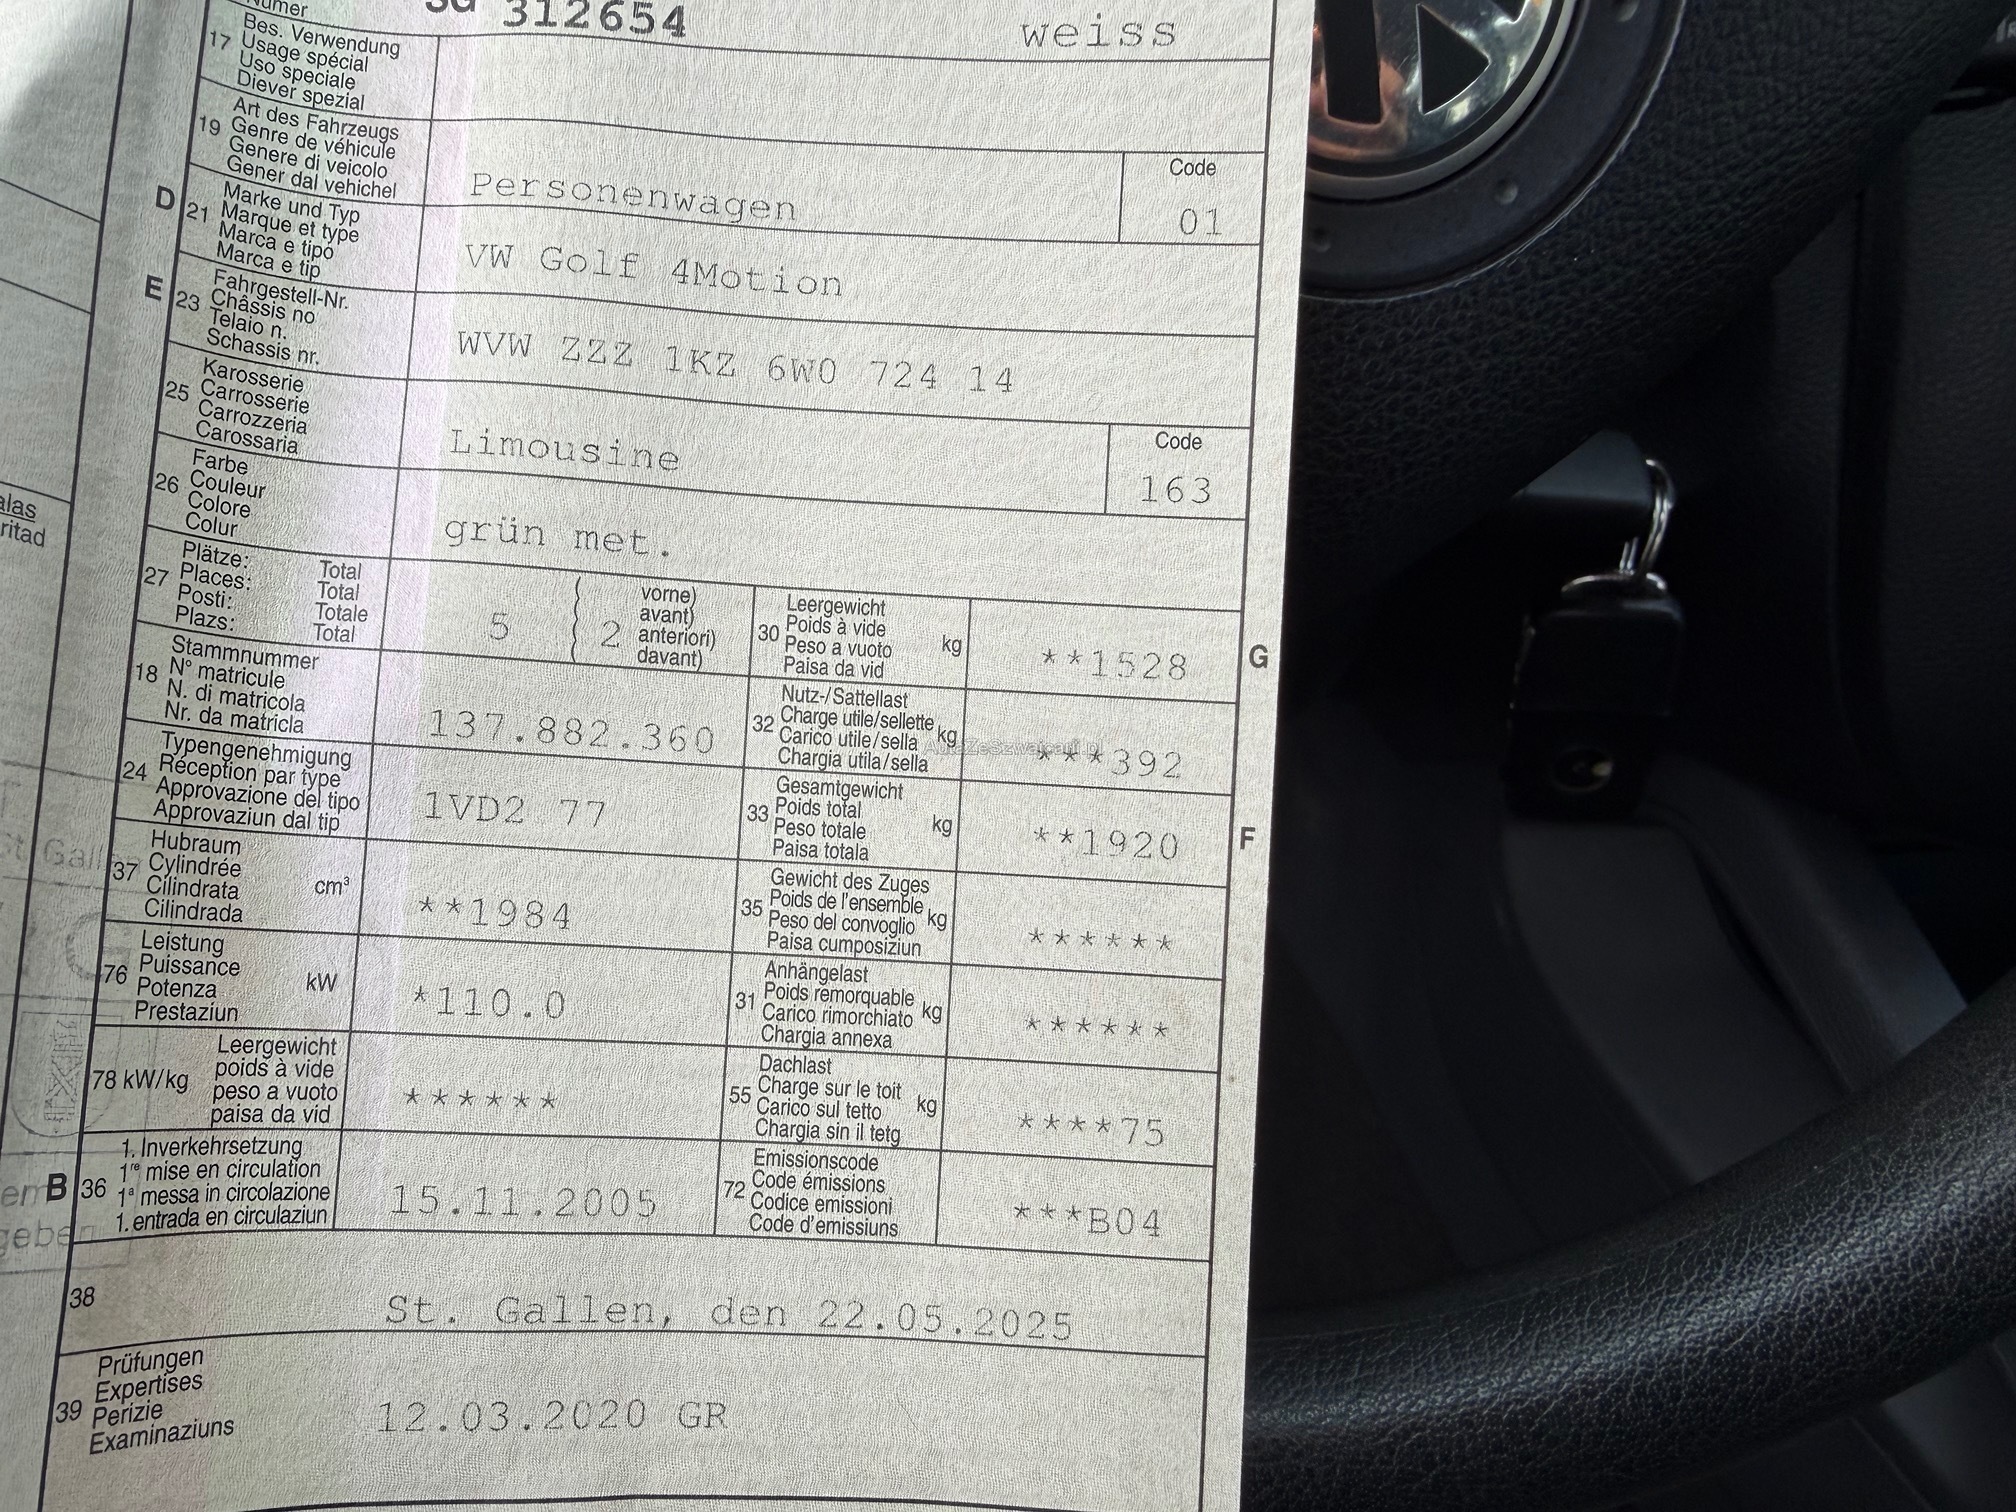 SG 312654 weiss
17 Bes. Verwendung
Usage spécial
Uso speciale
Diever spezial
19 Art des Fahrzeugs
Genre de véhicule
Genere di veicolo
Gener dal vehichel
Personenwagen
Code
01
D 21 Marke und Typ
Marque et type
Marca e tipo
Marca e tip
VW Golf 4Motion
E 23 Fahrgestell-Nr.
Châssis no
Telaio n.
Schassis nr.
WVW ZZZ 1KZ 6W0 724 14
25 Karosserie
Carrosserie
Carrozzeria
Carossaria
Limousine
Code
163
26 Farbe
Couleur
Colore
Colur
grün met.
27 Plätze: Total
Places: Total
Posti: Totale
Plazs: Total
5 2 vorne)
avant)
anteriori)
davant)
30 Leergewicht
Poids à vide
Peso a vuoto
Paisa da vid
kg **1528 G
18 Stammnummer
N° matricule
N. di matricola
Nr. da matricla
137.882.360
32 Nutz-/Sattellast
Charge utile/sellette
Carico utile/sella
Chargia utila/sella
kg ***392
24 Typengenehmigung
Réception par type
Approvazione del tipo
Approvaziun dal tip
1VD2 77
33 Gesamtgewicht
Poids total
Peso totale
Paisa totala
kg **1920 F
37 Hubraum
Cylindrée
Cilindrata
Cilindrada
cm³ **1984
35 Gewicht des Zuges
Poids de l'ensemble
Peso del convoglio
Paisa cumposiziun
kg ******
76 Leistung
Puissance
Potenza
Prestaziun
kW *110.0
31 Anhängelast
Poids remorquable
Carico rimorchiato
Chargia annexa
kg ******
78 kW/kg Leergewicht
poids à vide
peso a vuoto
paisa da vid
******
55 Dachlast
Charge sur le toit
Carico sul tetto
Chargia sin il tetg
kg ****75
B 36 1. Inverkehrsetzung
1re mise en circulation
1a messa in circolazione
1. entrada en circulaziun
15.11.2005
72 Emissionscode
Code émissions
Codice emissioni
Code d'emissiuns
***B04
38 St. Gallen, den 22.05.2025
39 Prüfungen
Expertises
Perizie
Examinaziuns
12.03.2020 GR